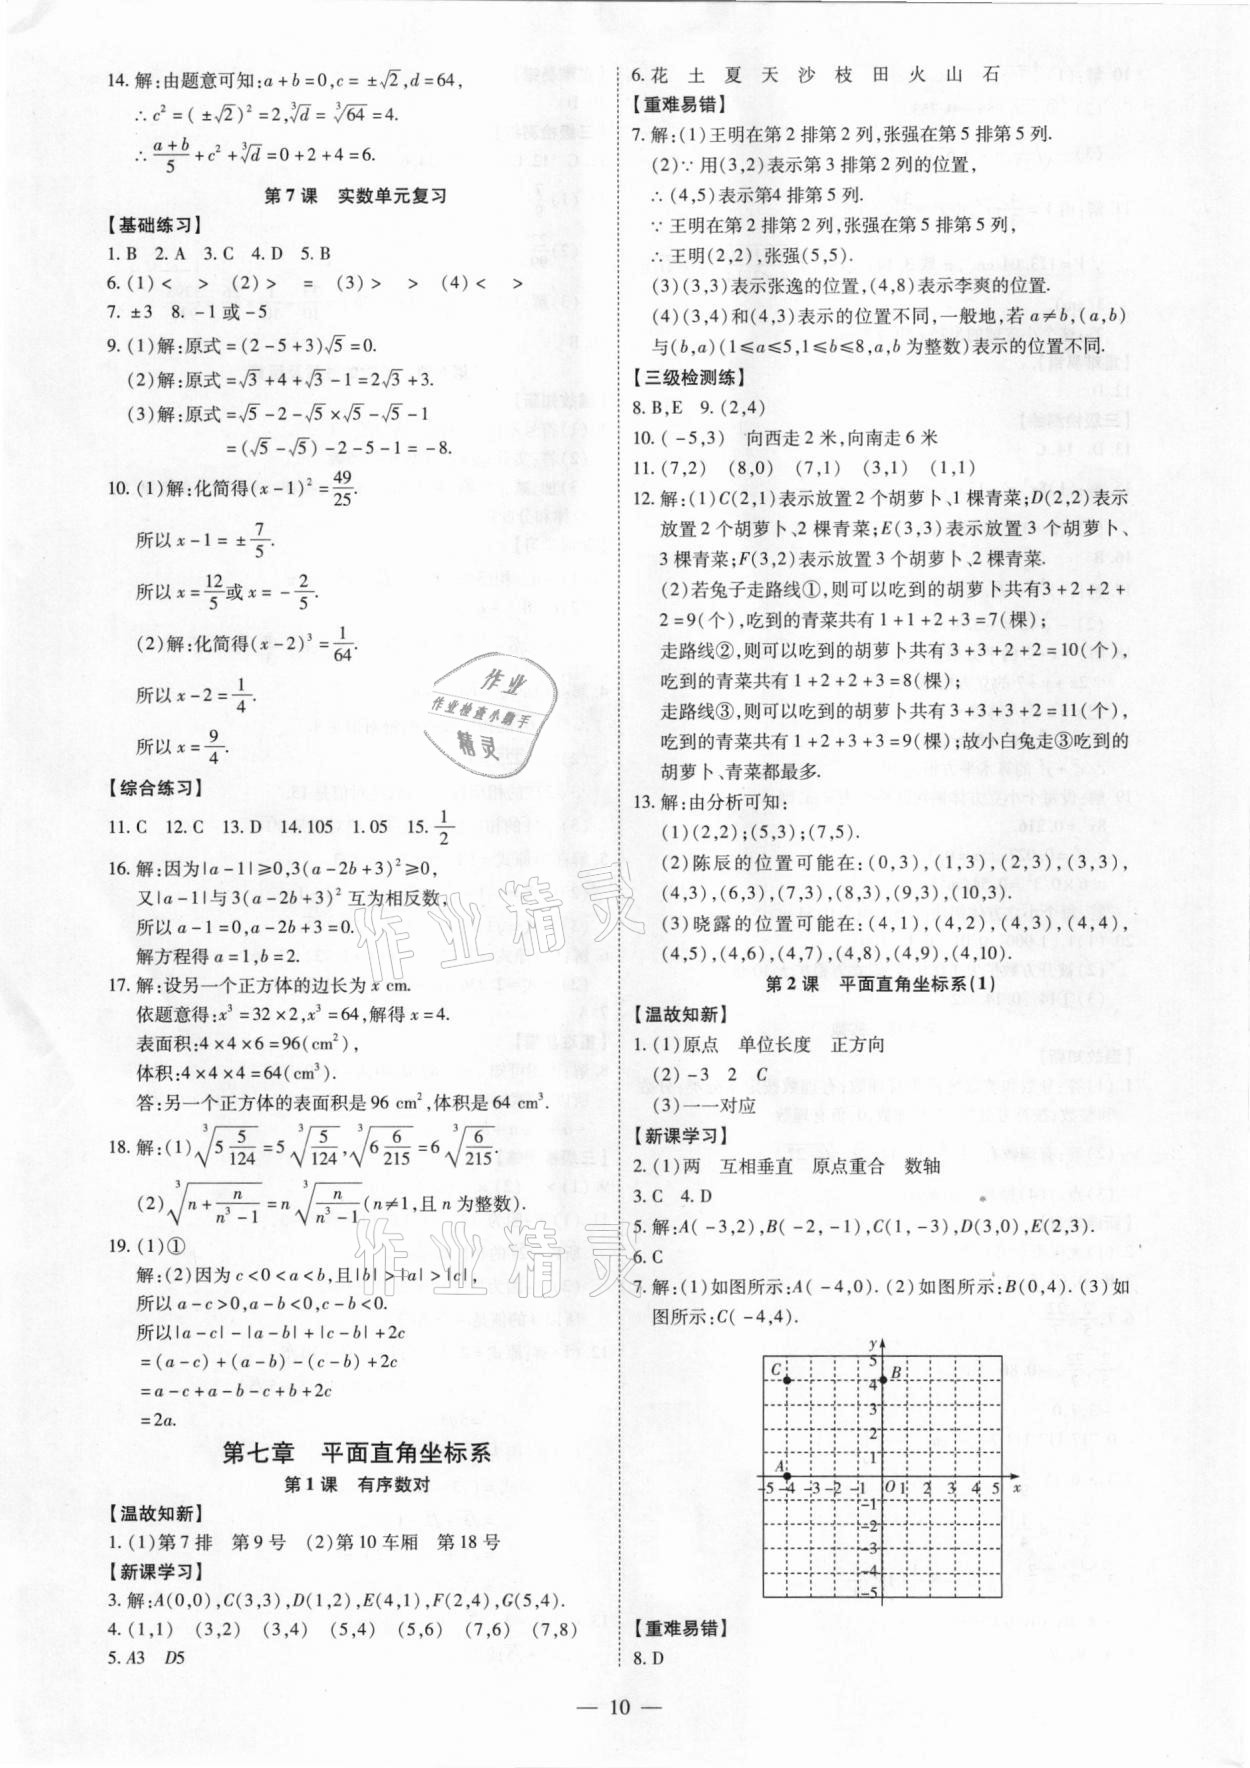 14. 解:由题意可知:a+b=0,c=±√2,d=64,
∴c²=(±√2)²=2,∛d=∛64=4.
∴(a+b)/5+c²+∛d=0+2+4=6.
第7课 实数单元复习
【基础练习】
1. B 2. A 3. C 4. D 5. B
6. (1)< > (2)> = (3)> > (4)< >
7. ±3 8. -1或-5
9. (1)解:原式=(2-5+3)√5=0.
(2)解:原式=√3+4+√3-1=2√3+3.
(3)解:原式=√5-2-√5×√5-√5-1
=(√5-√5)-2-5-1=-8.
10. (1)解:化简得(x-1)²=49/25.
所以x-1=±7/5.
所以x=12/5或x=-2/5.
(2)解:化简得(x-2)³=1/64.
所以x-2=1/4.
所以x=9/4.
【综合练习】
11. C 12. C 13. D 14. 105 1.05 15. 1/2
16. 解:因为|a-1|≥0,3(a-2b+3)²≥0,
又|a-1|与3(a-2b+3)²互为相反数,
所以a-1=0,a-2b+3=0.
解方程得a=1,b=2.
17. 解:设另一个正方体的边长为x cm.
依题意得:x³=32×2,x³=64,解得x=4.
表面积:4×4×6=96(cm²),
体积:4×4×4=64(cm³).
答:另一个正方体的表面积是96 cm²,体积是64 cm³.
18. 解:(1)∛(5 5/124)=5∛(5/124),∛(6 6/215)=6∛(6/215).
(2)∛(n+n/(n³-1))=n∛(n/(n³-1))(n≠1,且n为整数).
19. (1)①
解:(2)因为c<0<a<b,且|b|>|a|>|c|,
所以a-c>0,a-b<0,c-b<0.
所以|a-c|-|a-b|+|c-b|+2c
=(a-c)+(a-b)-(c-b)+2c
=a-c+a-b-c+b+2c
=2a.
第七章 平面直角坐标系
第1课 有序数对
【温故知新】
1. (1)第7排 第9号 (2)第10车厢 第18号
【新课学习】
3. 解:A(0,0),C(3,3),D(1,2),E(4,1),F(2,4),G(5,4).
4. (1,1) (3,2) (3,4) (5,4) (5,6) (7,6) (7,8)
5. A3 D5
6. 花 土 夏 天 沙 枝 田 火 山 石
【重难易错】
7. 解:(1)王明在第2排第2列,张强在第5排第5列.
(2)∵用(3,2)表示第3排第2列的位置,
∴(4,5)表示第4排第5列.
∵王明在第2排第2列,张强在第5排第5列,
∴王明(2,2),张强(5,5).
(3)(3,3)表示张逸的位置,(4,8)表示李爽的位置.
(4)(3,4)和(4,3)表示的位置不同,一般地,若a≠b,(a,b)
与(b,a)(1≤a≤5,1≤b≤8,a,b为整数)表示的位置不同.
【三级检测练】
8. B,E 9. (2,4)
10. (-5,3) 向西走2米,向南走6米
11. (7,2) (8,0) (7,1) (3,1) (1,1)
12. 解:(1)C(2,1)表示放置2个胡萝卜、1棵青菜;D(2,2)表示
放置2个胡萝卜、2棵青菜;E(3,3)表示放置3个胡萝卜、
3棵青菜;F(3,2)表示放置3个胡萝卜、2棵青菜.
(2)若兔子走路线①,则可以吃到的胡萝卜共有3+2+2+
2=9(个),吃到的青菜共有1+1+2+3=7(棵);
走路线②,则可以吃到的胡萝卜共有3+3+2+2=10(个),
吃到的青菜共有1+2+2+3=8(棵);
走路线③,则可以吃到的胡萝卜共有3+3+3+2=11(个),
吃到的青菜共有1+2+3+3=9(棵);故小白兔走③吃到的
胡萝卜、青菜都最多.
13. 解:由分析可知:
(1)(2,2);(5,3);(7,5).
(2)陈辰的位置可能在:(0,3),(1,3),(2,3),(3,3),
(4,3),(6,3),(7,3),(8,3),(9,3),(10,3).
(3)晓露的位置可能在:(4,1),(4,2),(4,3),(4,4),
(4,5),(4,6),(4,7),(4,8),(4,9),(4,10).
第2课 平面直角坐标系(1)
【温故知新】
1. (1)原点 单位长度 正方向
(2)-3 2 C
(3)一一对应
【新课学习】
2. (1)两 互相垂直 原点重合 数轴
3. C 4. D
5. 解:A(-3,2),B(-2,-1),C(1,-3),D(3,0),E(2,3).
6. C
7. 解:(1)如图所示:A(-4,0). (2)如图所示:B(0,4). (3)如
图所示:C(-4,4).
y
5
C
B
4
3
2
1
A
-5 -4 -3 -2 -1 O 1 2 3 4 5 x
-1
-2
-3
-4
-5
【重难易错】
8. D
— 10 —
作业
作业检查小助手
精灵
作业精灵
作业精灵